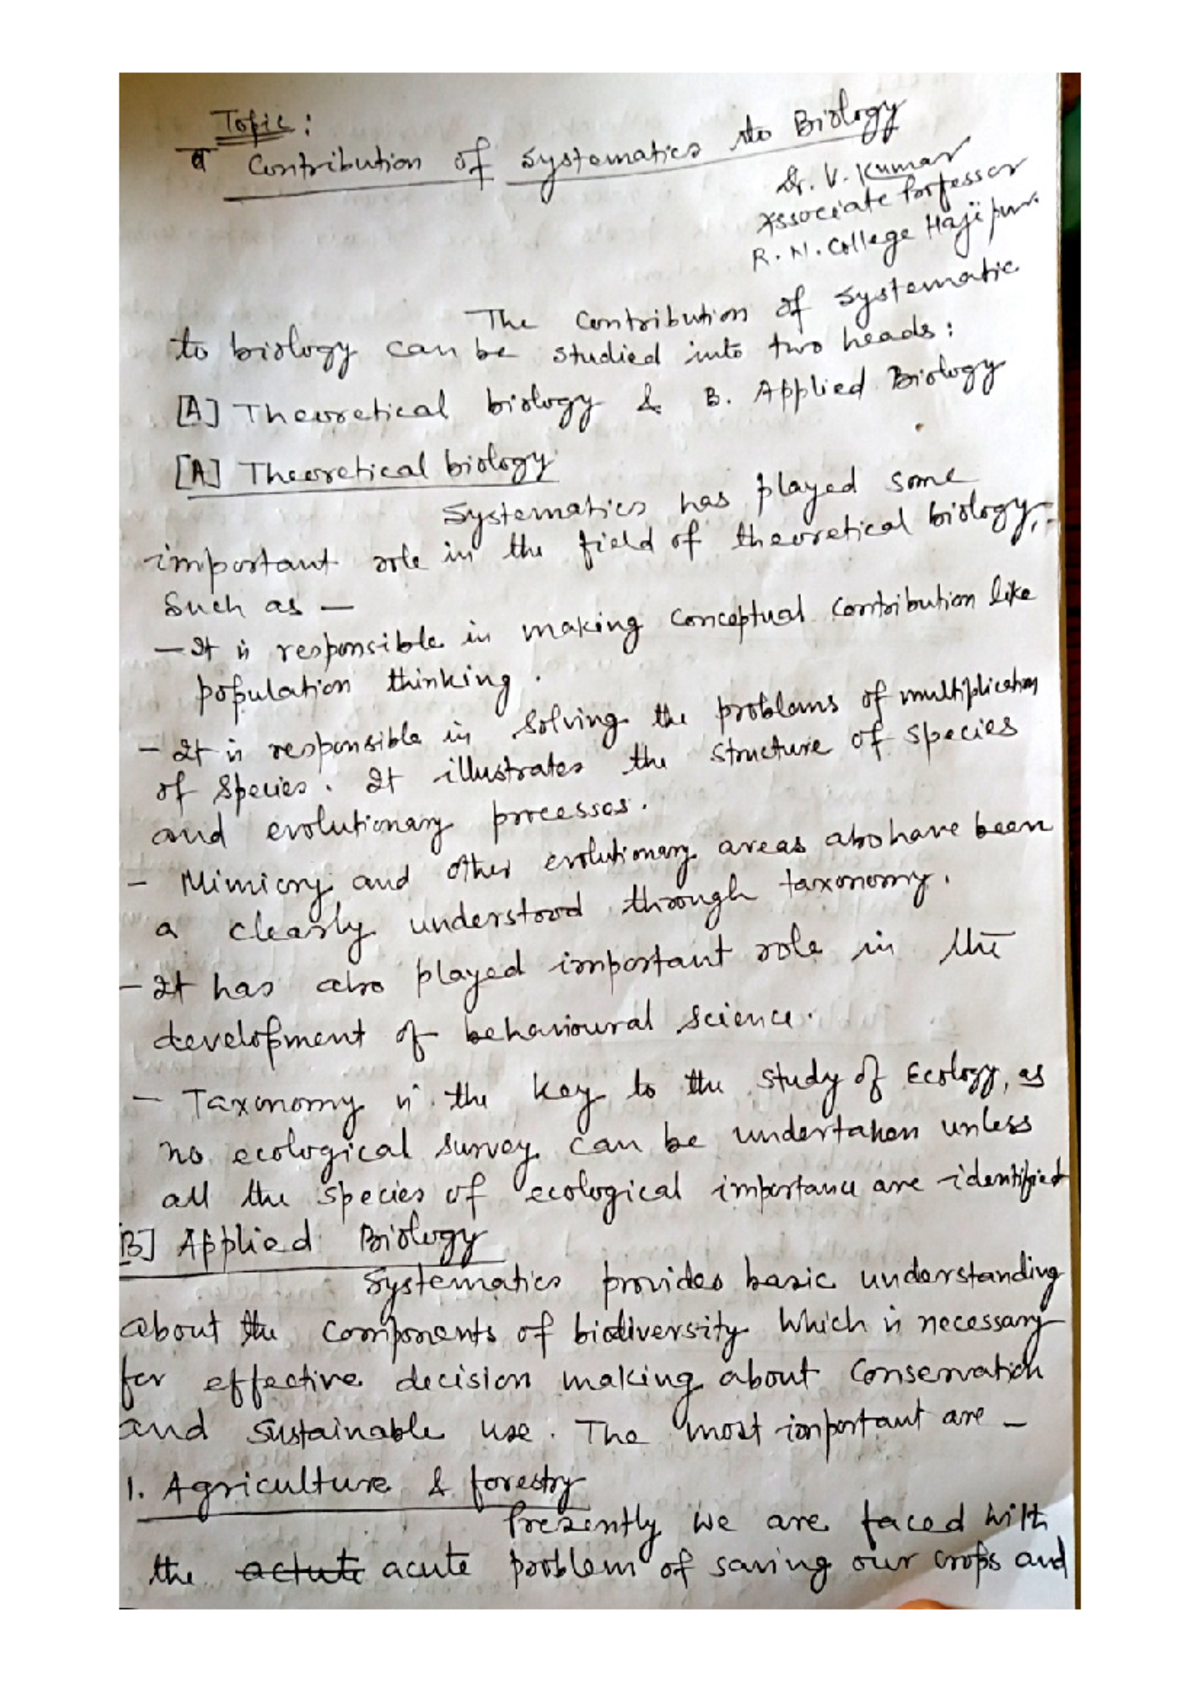 Topic:
Contribution of Systematics to Biology
Dr. V. Kumar
Associate Porfessor
R. N. College Hajipur.
The Contribution of Systematic
to biology can be studied into two heads:
[A] Theoretical biology & B. Applied Biology
[A] Theoretical biology
Systematics has played some
important role in the field of theoretical biology,
Such as —
— It is responsible in making conceptual contribution like
population thinking.
— It is responsible in solving the problems of multiplication
of species. It illustrates the structure of species
and evolutionary processes.
— Mimicry and other evolutionary areas also have been
a clearly understood through taxonomy.
— It has also played important role in the
development of behavioural science.
— Taxonomy is the key to the study of Ecology, as
no ecological survey can be undertaken unless
all the species of ecological importance are identified
[B] Applied Biology
Systematics provides basic understanding
about the components of biodiversity which is necessary
for effective decision making about Conservation
and sustainable use. The most important are —
1. Agriculture & forestry
Presently we are faced with
the actute acute problem of saving our crops and